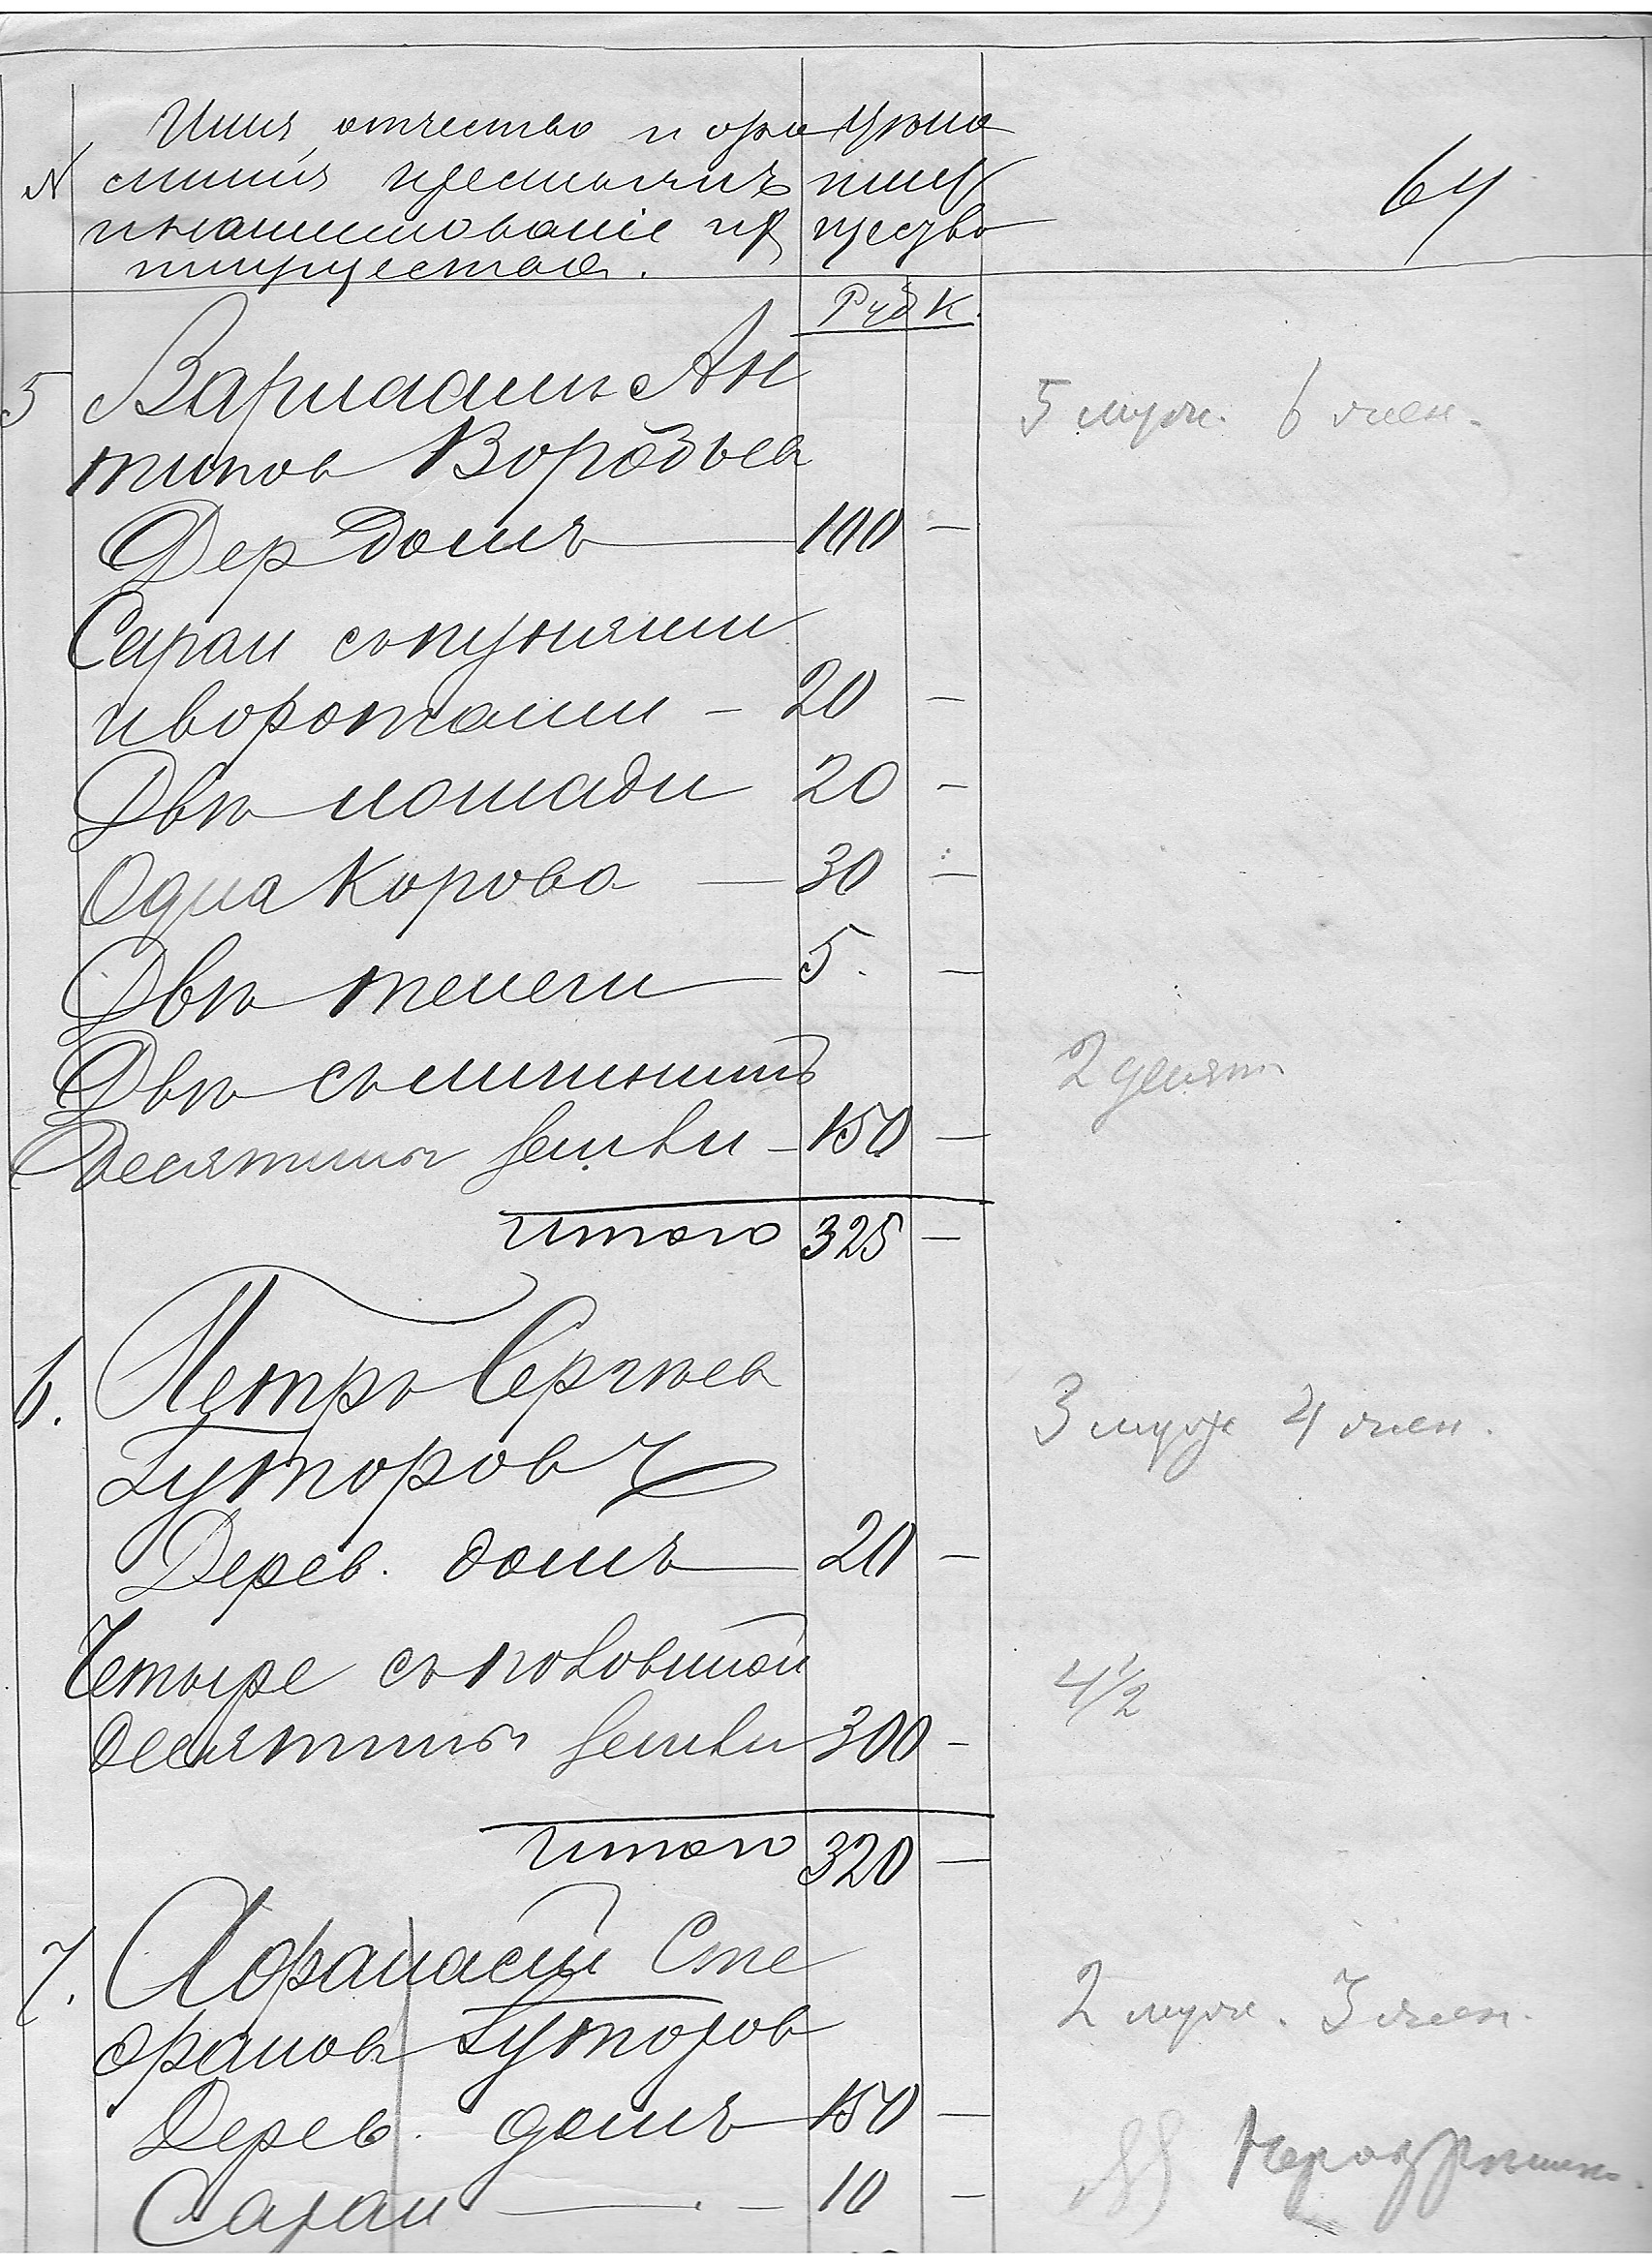 Имя, отчество и фа
милія крестьянъ
и наименованіе их
имущества.
№
Цѣна
иму
щества
64
Руб К.
5 Варлаамъ Ан
типов Воробьев
5 муж. 6 жен.
Дер домъ 100 —
Сараи съ кухнями
и воротами — 20 —
Двѣ лошади 20 —
Одна корова — 30 —
Двѣ телеги — 5. —
Двѣ съ
десятины земли — 150 —
2 десят
Итого 325 —
6. Петръ Сергѣев
Гуторов
3 муж 4 жен.
Дерев. домъ 20 —
Четыре съ половиной
десятины земли 300 —
4 1/2
Итого 320 —
7. Афанасій Сте
фанов Гуторов
2 муж. 3 жен.
Дерев. домъ 150 —
Сараи — 10 —